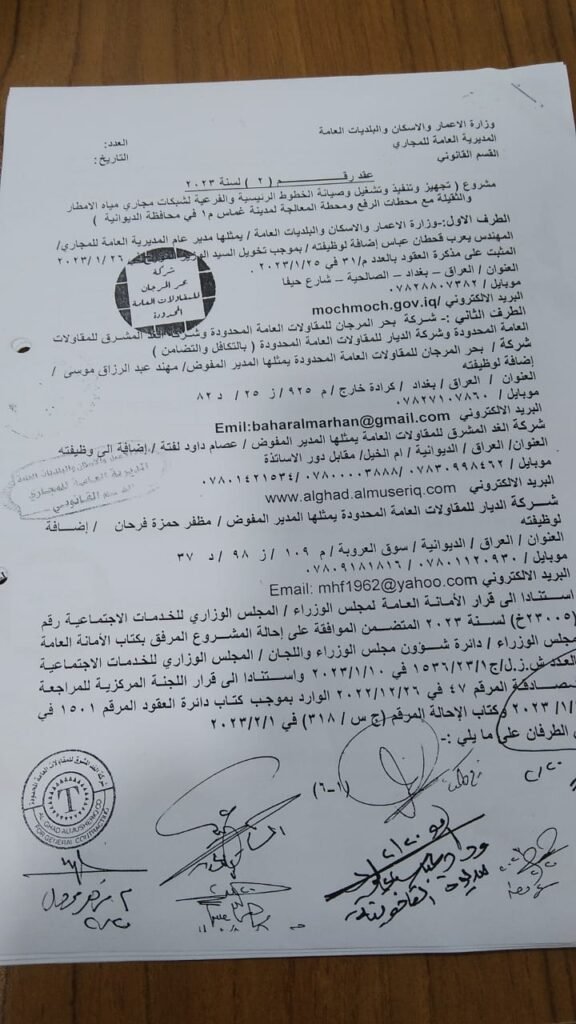 وزارة الاعمار والاسكان والبلديات العامة
المديرية العامة للمجاري
القسم القانوني
العدد:
التاريخ:
عقد رقـــــــم ( ٢ ) لسنة ٢٠٢٣
مشروع ( تجهيز وتنفيذ وتشغيل وصيانة الخطوط الرئيسية والفرعية لشبكات مجاري مياه الامطار
والثقيلة مع محطات الرفع ومحطة المعالجة لمدينة غماس م١ في محافظة الديوانية )
الطرف الاول:-وزارة الاعمار والاسكان والبلديات العامة / يمثلها مدير عام المديرية العامة للمجاري/
المهندس يعرب قحطان عباس إضافة لوظيفته / بموجب تخويل السيد ٢٠٢٣/١/٢٦
المثبت على مذكرة العقود بالعدد م/٣١ في ٢٠٢٣/١/٢٥
العنوان / العراق – بغداد – الصالحية – شارع حيفا
موبايل / ٠٧٨٢٨٨٠٧٣٨٢
البريد الالكتروني /mochmoch.gov.iq
شركة
بحر المرجان
للمقاولات العامة
المحدودة
الطرف الثاني :- شركة بحر المرجان للمقاولات العامة المحدودة وشركة الغد المشرق للمقاولات
العامة المحدودة وشركة الديار للمقاولات العامة المحدودة ( بالتكافل والتضامن )
شركة / بحر المرجان للمقاولات العامة المحدودة يمثلها المدير المفوض/ مهند عبد الرزاق موسى /
إضافة لوظيفته
العنوان / العراق / بغداد / كرادة خارج / م ٩٢٥ / ز ٢٥ / د ٨٢
موبايل / ٠٧٨٢٧١٠٧٨٦٠
البريد الالكتروني Emil:baharalmarhan@gmail.com
شركة الغد المشرق للمقاولات العامة يمثلها المدير المفوض / عصام داود لفتة / إضافة الى وظيفته
العنوان/ العراق / الديوانية / ام الخيل/ مقابل دور الاساتذة
موبايل / ٠٧٨٣٠٩٩٨٤٦٢ / ٠٧٨٠٠٠٠٣٨٨٨/ ٠٧٨٠١٤٢١٥٣٤
البريد الالكتروني www.alghad.almuseriq.com
المديرية العامة للمجاري
القسم القانوني
شــركة الديار للمقاولات العامة المحدودة يمثلها المدير المفوض / مظفر حمزة فرحان / إضــافة
لوظيفته
العنوان / العراق / الديوانية / سوق العروبة / م ١٠٩ / ز ٩٨ / د ٣٧
موبايل / ٠٧٨٠١١٢٠٩٣٠ / ٠٧٨٠٩١٨١٨١٦
البريد الالكتروني Email: mhf1962@yahoo.com
استنادا الى قرار الأمانة العامة لمجلس الوزراء / المجلس الوزاري للخدمات الاجتماعية رقم
(٢٣٠٠٥خ) لسنة ٢٠٢٣ المتضمن الموافقة على إحالة المشروع المرفق بكتاب الأمانة العامة
مجلس الوزراء / دائرة شؤون مجلس الوزراء واللجان / المجلس الوزاري للخدمات الاجتماعية
العدد ش.ز.ل/ج١٥٣٦/٢٣/١ في ٢٠٢٣/١/١٠ واستنادا الى قرار اللجنة المركزية للمراجعة
المرقم ٤٧ في ٢٠٢٢/١٢/٢٦ الوارد بموجب كتاب دائرة العقود المرقم ١٥٠١ في
٢٠٢٣ وكتاب الإحالة المرقم (ج س / ٣١٨) في ٢٠٢٣/٢/١
الطرفان على ما يلي :-
(٦-١)
شركة الغد المشرق للمقاولات العامة المحدودة
T
FOR GENERAL CONTRACTING